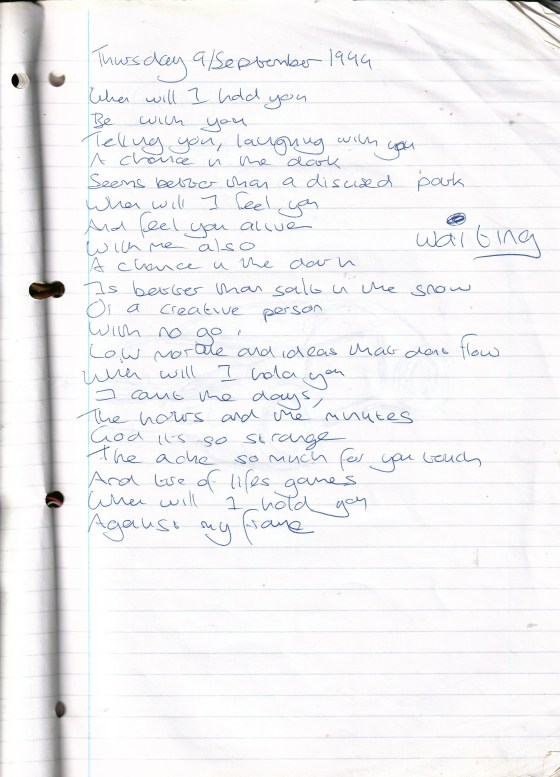 Thursday 9/September 1999
When will I hold you
Be with you
Telling you, laughing with you
A chance in the dark
Seems better than a disused park
When will I feel you
And feel you alive
With me also
waiting
A chance in the dark
Is better than salt in the snow
Or a creative person
With no go,
Low morale and ideas that dont flow
When will I hold you
I count the days,
The hours and the minutes
God its so strange
The ache so much for you touch
And of lifes games
When will I hold you
Against my frame